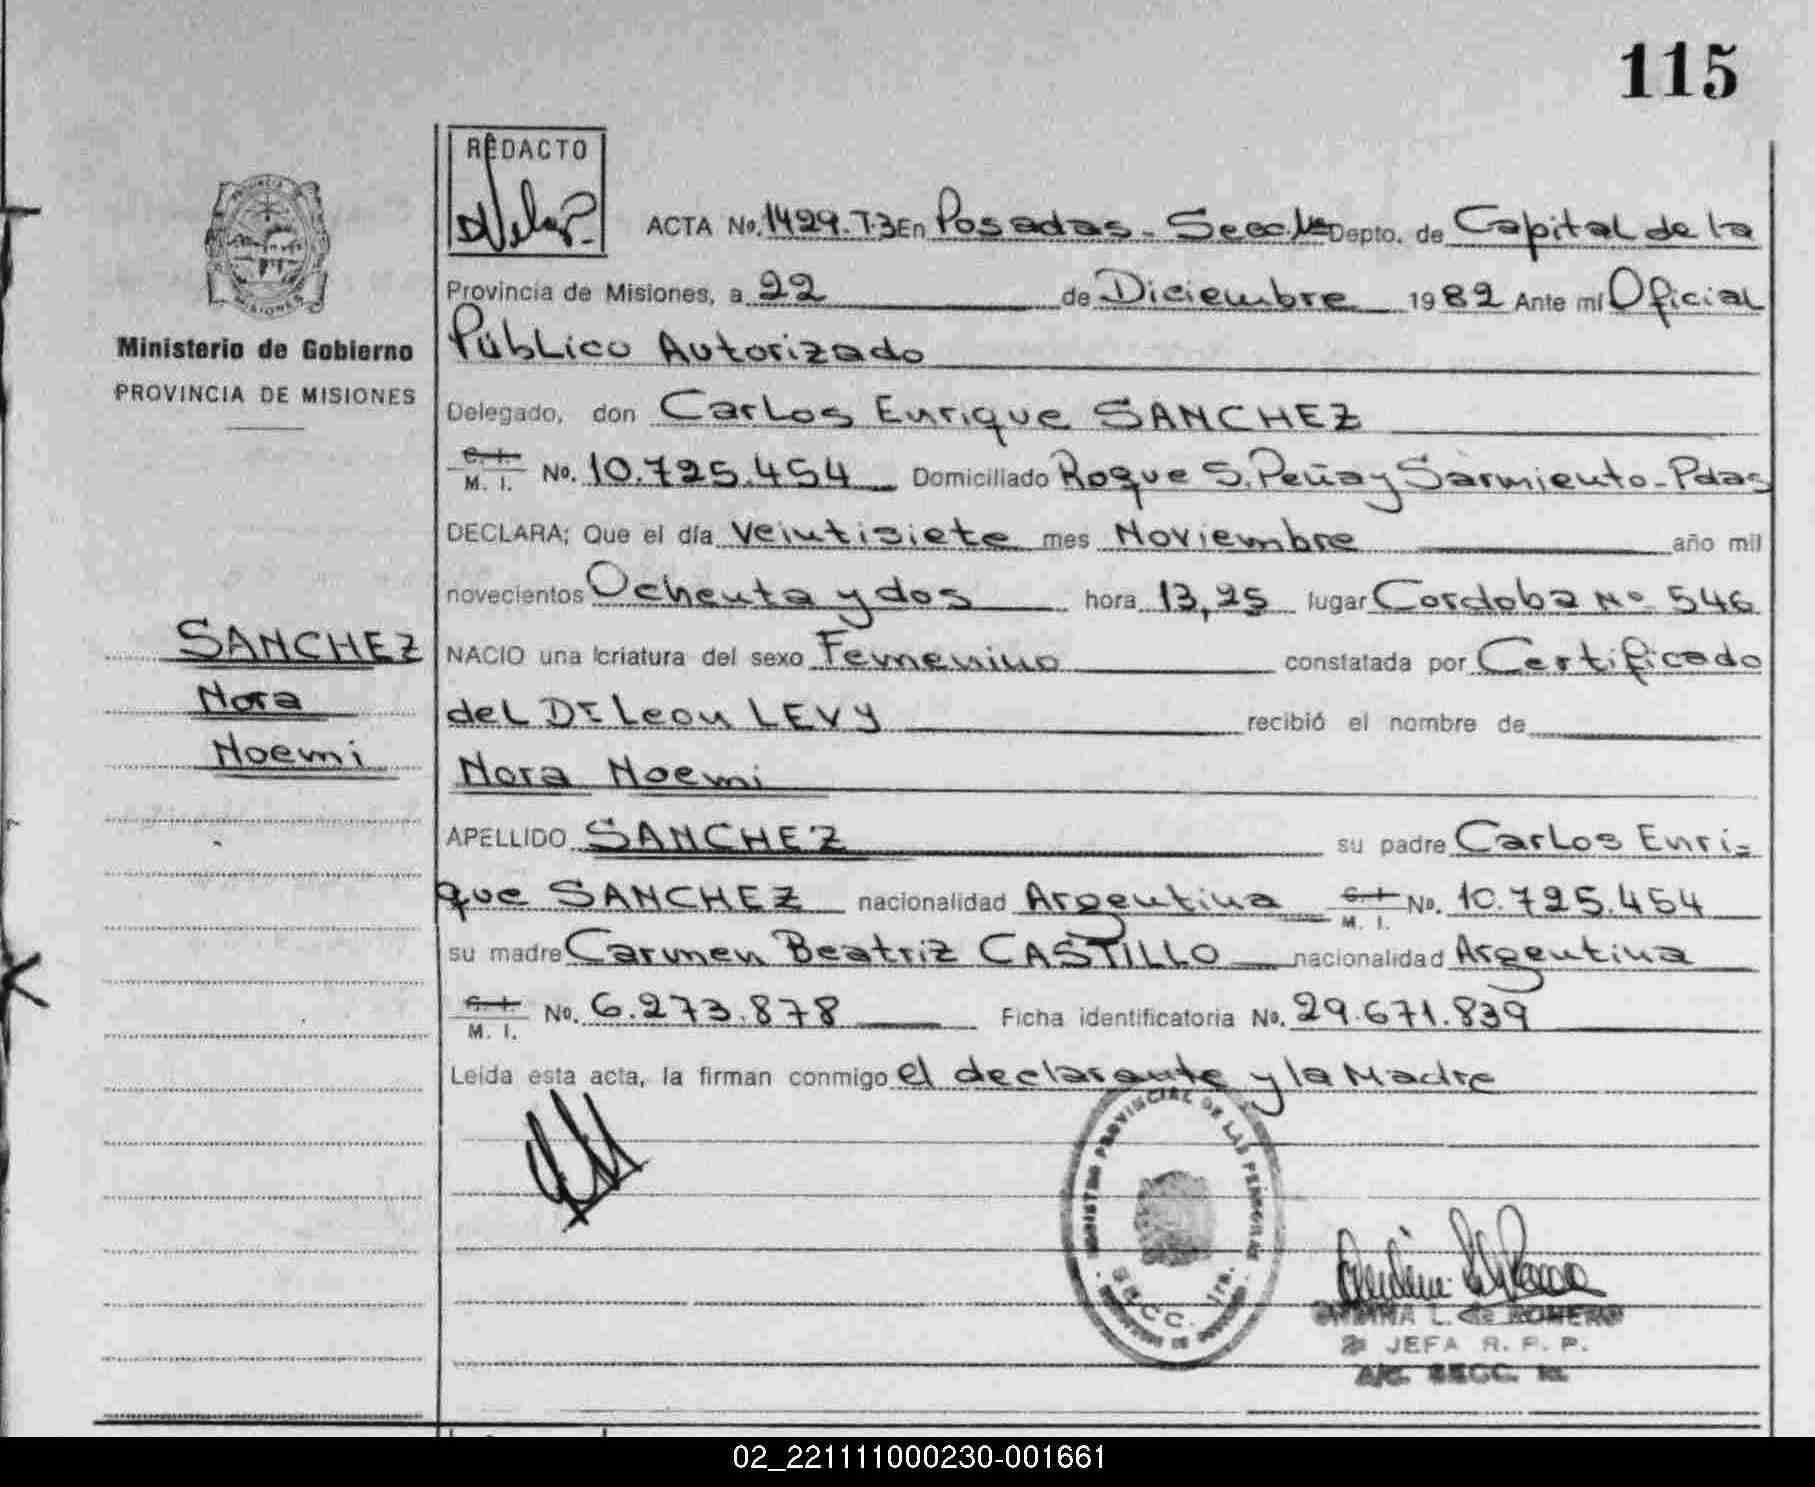 115
REDACTO
ACTA Nº. 1429.T3 En Posadas - Secc. 1ra Depto. de Capital de la
Provincia de Misiones, a 22 de Diciembre 1982 Ante mí Oficial
Ministerio de Gobierno
PROVINCIA DE MISIONES
Público Autorizado
Delegado, don Carlos Enrique SANCHEZ
C. I.
M. I. Nº. 10.725.454 Domiciliado Roque S. Peña y Sarmiento - Pdas
DECLARA; Que el día Veintisiete mes Noviembre año mil
novecientos Ochenta y dos hora 13,25 lugar Cordoba Nº 546
SANCHEZ
Nora
Noemi
NACIO una criatura del sexo Femenino constatada por Certificado
del Dr Leon LEVY recibió el nombre de
Nora Noemi
APELLIDO SANCHEZ su padre Carlos Enri-
que SANCHEZ nacionalidad Argentina C. I. M. I. Nº. 10.725.454
su madre Carmen Beatriz CASTILLO nacionalidad Argentina
C. I.
M. I. Nº. 6.273.878 Ficha identificatoria Nº. 29.671.839
Leída esta acta, la firman conmigo el declarante y la Madre
REGISTRO PROVINCIAL DE LAS PERSONAS
SECC. 1ra.
L. de ROMERO
JEFA R. P. P.
SECC.
02_221111000230-001661